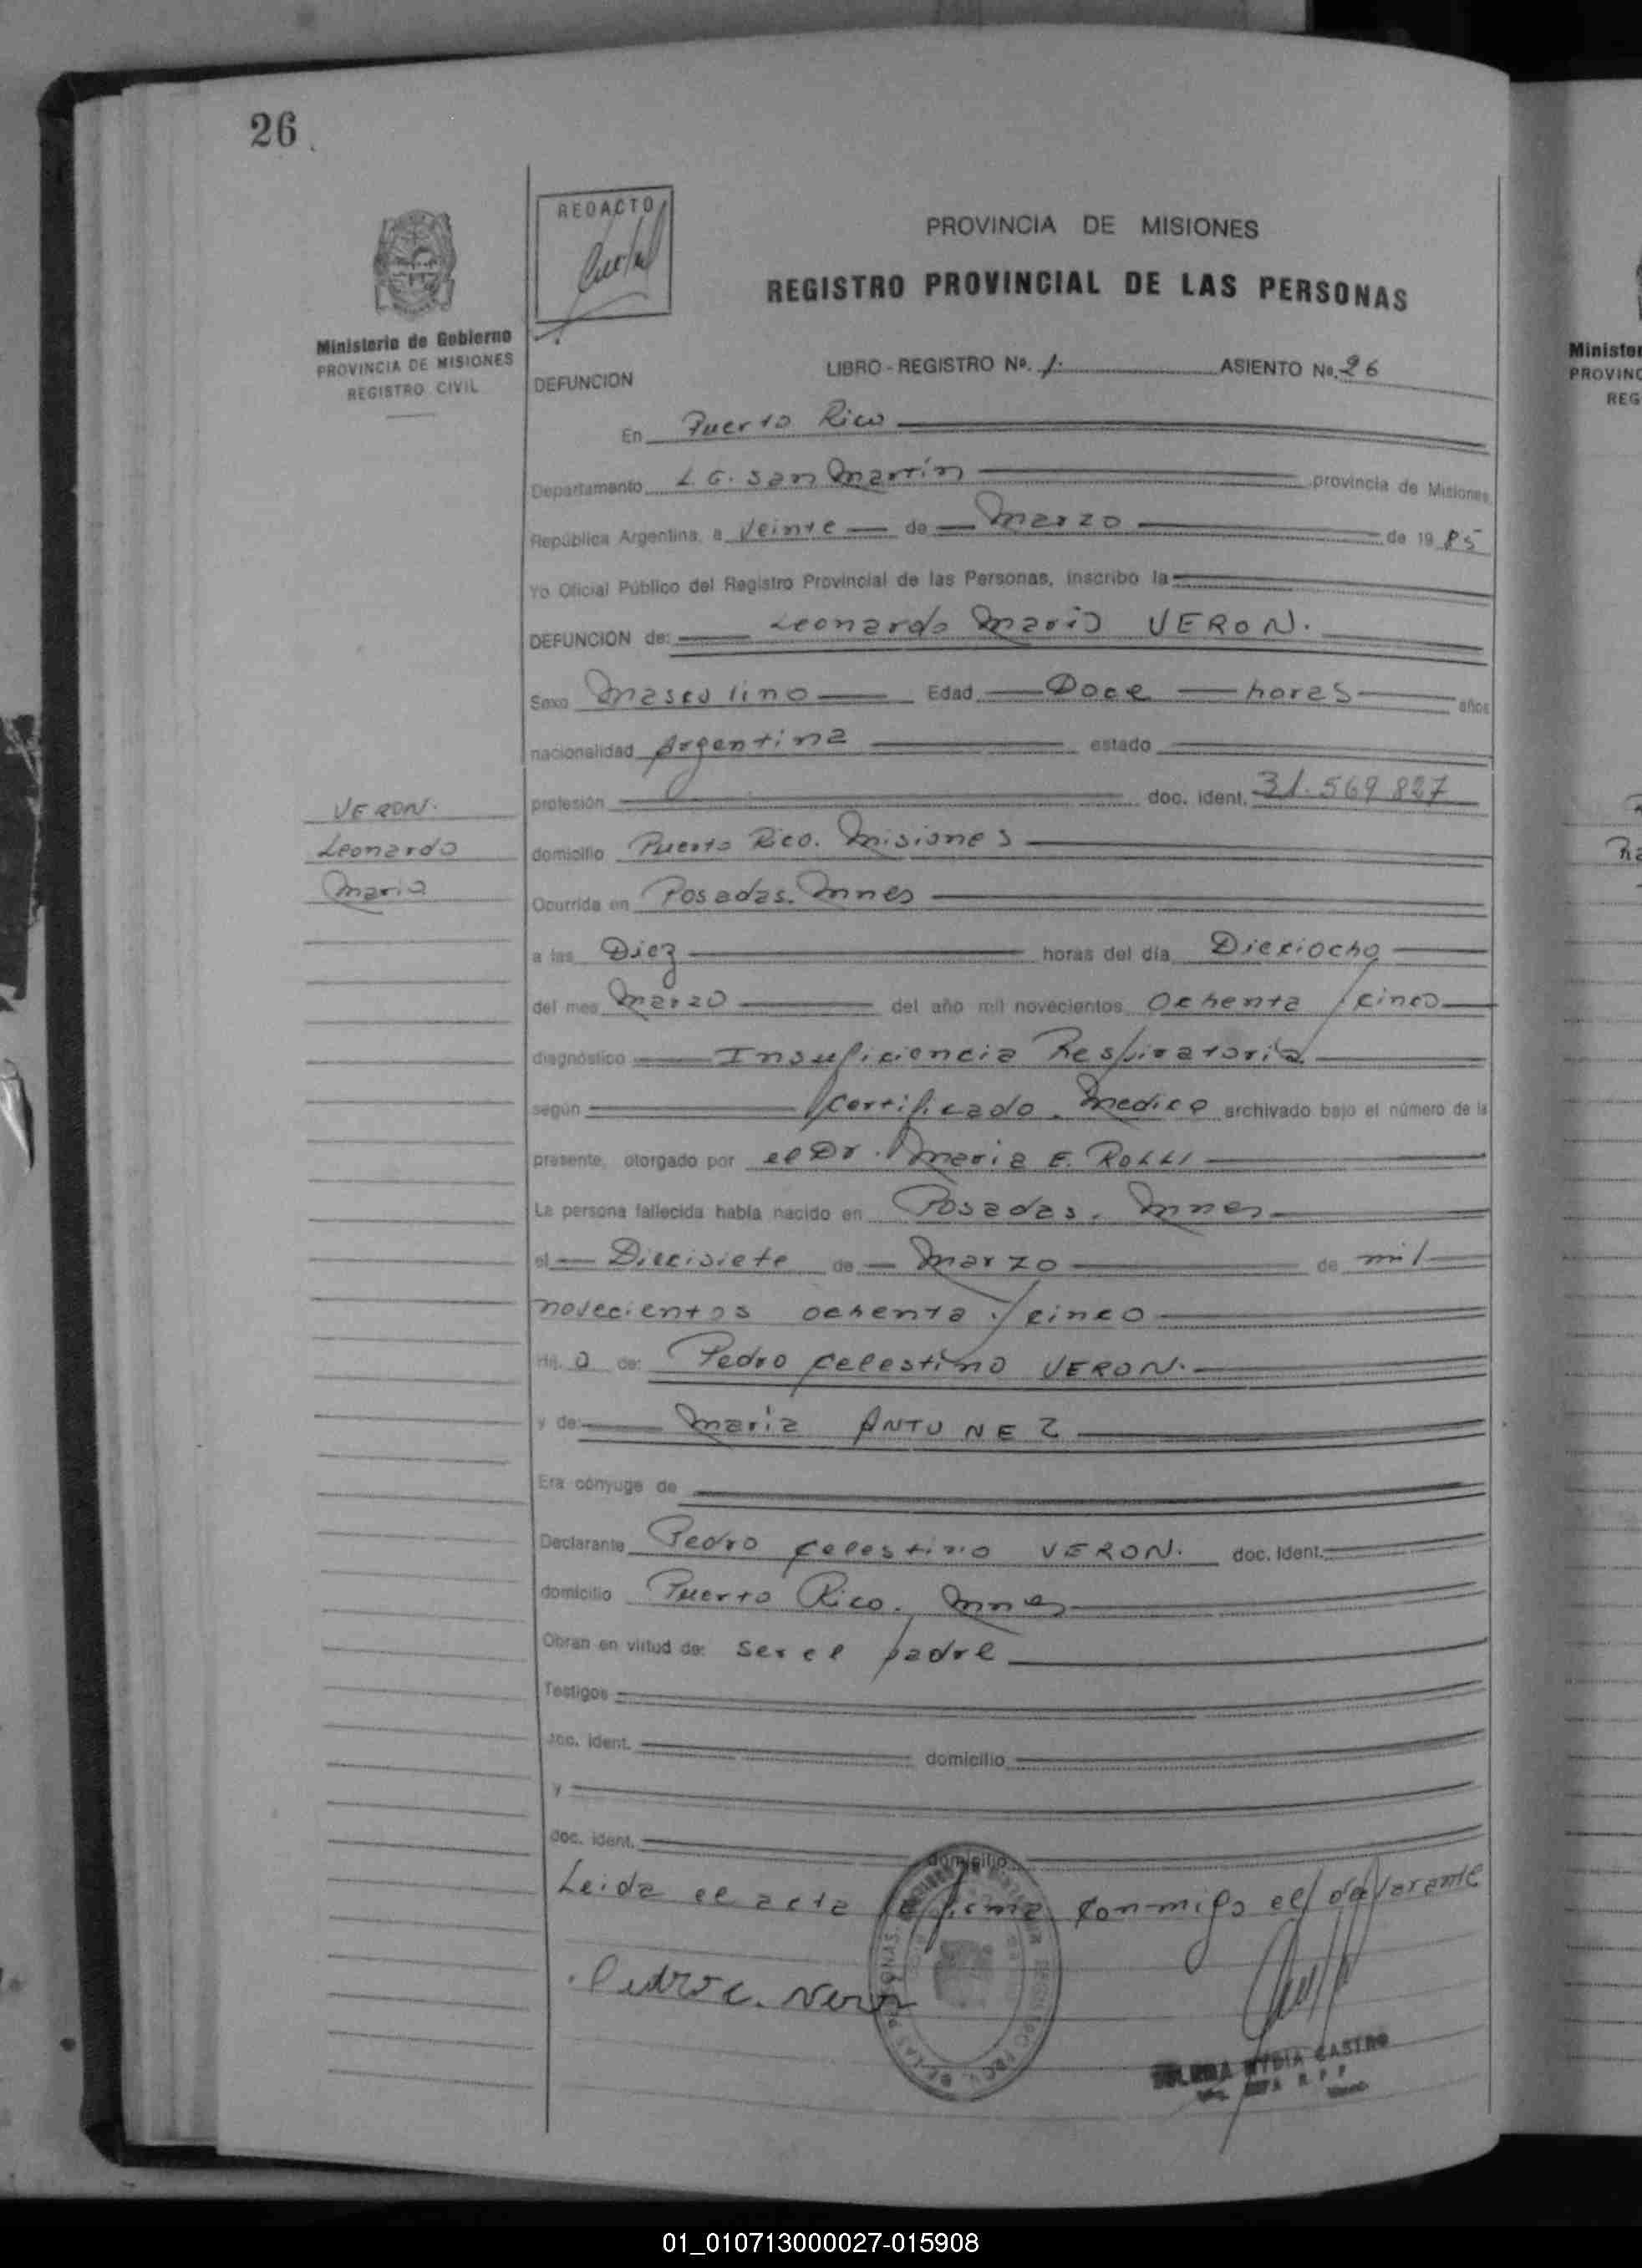 26
REDACTO
PROVINCIA DE MISIONES
REGISTRO PROVINCIAL DE LAS PERSONAS
Ministerio de Gobierno
PROVINCIA DE MISIONES
REGISTRO CIVIL
LIBRO - REGISTRO Nº. 1. ASIENTO Nº. 26
DEFUNCION
En Puerto Rico
Departamento L. G. San Martín provincia de Misiones,
República Argentina, a Veinte de Marzo de 19 85
Yo Oficial Público del Registro Provincial de las Personas, inscribo la
DEFUNCION de: Leonardo Mario VERON.
Sexo Masculino Edad Doce horas años
nacionalidad Argentina estado
profesión doc. ident. 31.569.827
VERON.
Leonardo
Mario
domicilio Puerto Rico. Misiones
Ocurrida en Posadas. Mnes
a las Diez horas del día Dieciocho
del mes Marzo del año mil novecientos Ochenta y cinco
diagnóstico Insuficiencia Respiratoria
según Certificado Medico archivado bajo el número de la
presente, otorgado por el Dr. Maria E. ROLLI
La persona fallecida había nacido en Posadas. Mnes
el Diecisiete de Marzo de mil
novecientos ochenta y cinco
Hij o de: Pedro Celestino VERON.
y de: Maria ANTUNEZ
Era cónyuge de
Declarante Pedro Celestino VERON. doc. ident.
domicilio Puerto Rico. Mnes
Obran en virtud de: ser el padre
Testigos
doc. ident. domicilio
y
doc. ident. domicilio
Leida el acta la firma conmigo el declarante
Pedro C. Veron
NYDIA CASTRO
Ministe
PROVINC
REG
01_010713000027-015908